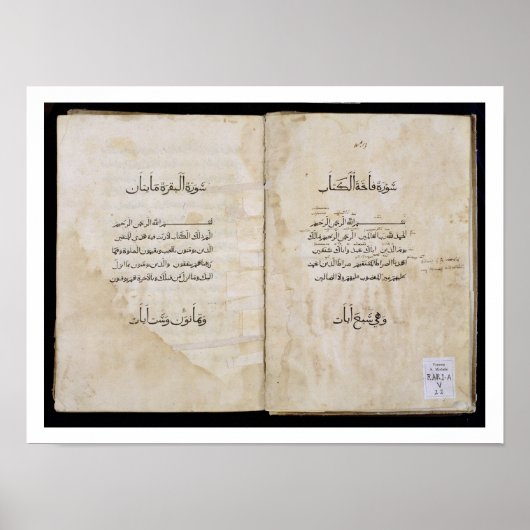 سورة فاتحة الكتاب
بسم الله الرحمن الرحيم
الحمد لله رب العالمين الرحمن الرحيم ملك
يوم الدين اياك نعبد واياك نستعين
اهدنا الصراط المستقيم صراط الذين انعمت
عليهم غير المغضوب عليهم ولا الضالين
وهي سبع ايات
S. Michele
RARI-A
V
22
سورة البقرة مايتان
بسم الله الرحمن الرحيم
الم ذلك الكتاب لا ريب فيه هدى للمتقين
الذين يومنون بالغيب ويقيمون الصلوة ومما
رزقناهم ينفقون والذين يومنون بما انزل
اليك وما انزل من قبلك وبالاخرة هم يوقنون
وثمانون وست ايات